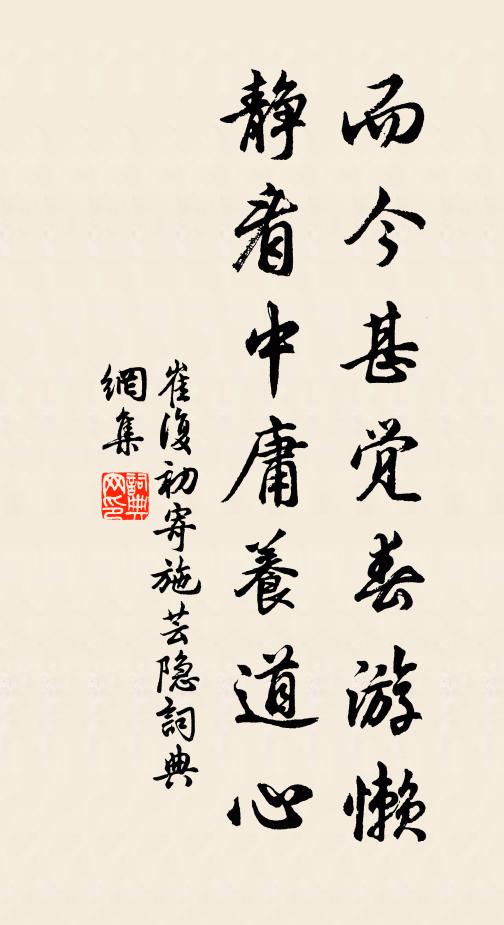 而今甚觉春游懒
静看中庸養道心
崔復初寄施芸隐詞典
網集
詞典
网印